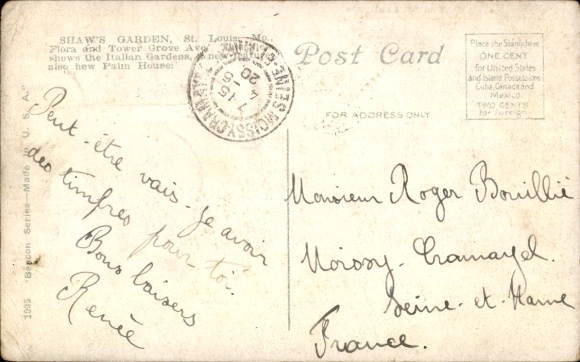 SHAW'S GARDEN, St. Louis, Mo.
Flora and Tower Grove Ave
shows the Italian Gardens,
also new Palm House.
Post Card
Place the Stamp here
ONE CENT
for United States
and Island Possessions
Cuba, Canada and
Mexico.
TWO CENTS
for Foreign
FOR ADDRESS ONLY
MOISSY-CRAMAYEL
SEINE
7-15
4
20 - 5
Peut-être vais-je avoir
des timbres pour toi.
Bons baisers
Renée
Monsieur Roger Bouillié
Moissy-Cramayel.
Seine-et-Marne
France.
1095 "Beacon Series—Made in U. S. A."